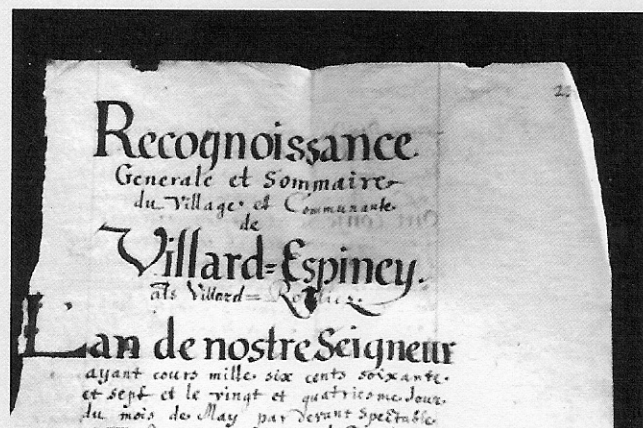 2
Recognoissance
Generale et Sommaire
du Village et Communante
de
Villard=Espincy.
als Villard=
Lan de nostre Seigneur
ayant cours mille six cents soixante
et sept et le vingt et quatriesme Jour
du mois de May par devant Spectable